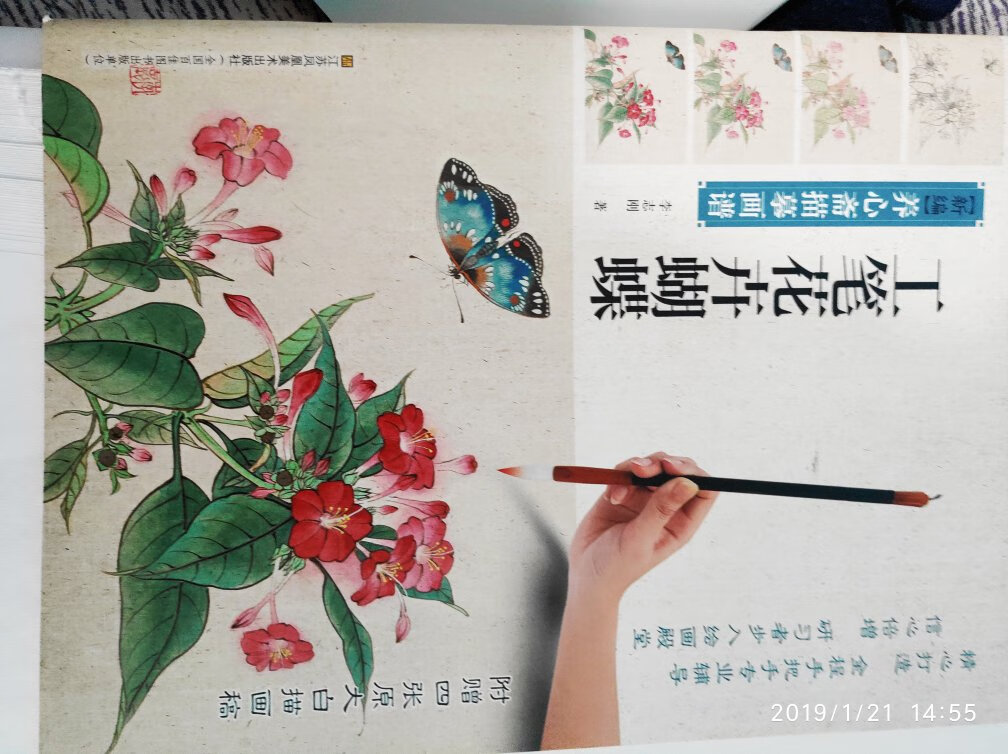 [新编]养心斋描摹画谱
李志刚 著
工笔花卉蝴蝶
精心打造 全程手把手专业辅导
信心倍增 研习者步入绘画殿堂
附赠四张原大白描画稿
江苏凤凰美术出版社(全国百佳图书出版单位)
2019/1/21 14:55